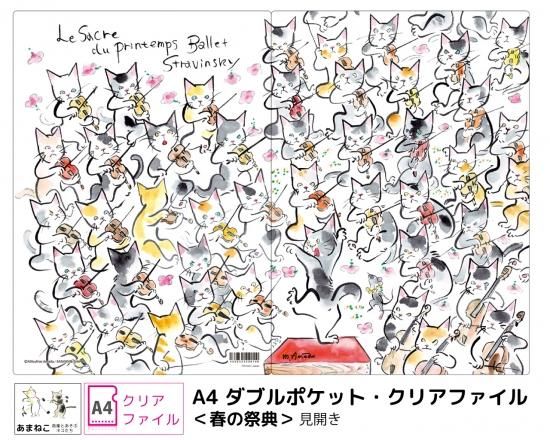 Le Sacre
du printemps Ballet
Stravinsky
M. Amano
A4 クリア
ファイル
あまねこ
A4 ダブルポケット・クリアファイル
＜春の祭典＞見開き